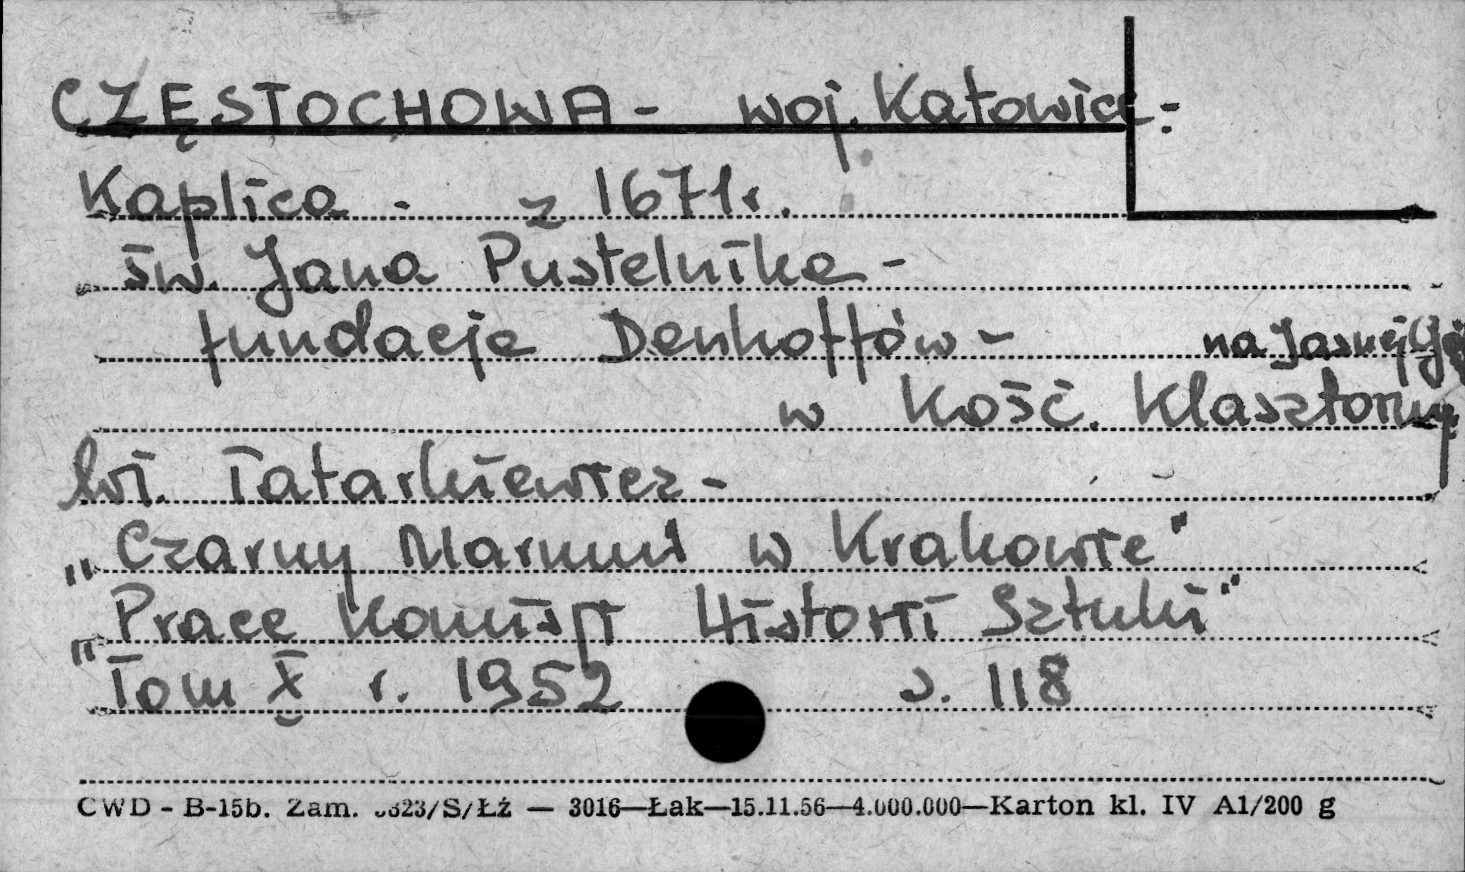 CZĘSTOCHOWA - woj. Katowice:
Kaplica - z 1671r.
św. Jana Pustelnika -
fundacja Denhoffów - na Jasnej Gó
w Kość. Klasztorny
Wł. Tatarkiewicz -
"Czarny Marmur w Krakowie"
"Prace Komisji Historii Sztuki"
Tom X r. 1952 s. 118
CWD - B-15b. Zam. 3823/S/ŁŹ — 3016—Łak—15.11.56—4.000.000—Karton kl. IV A1/200 g